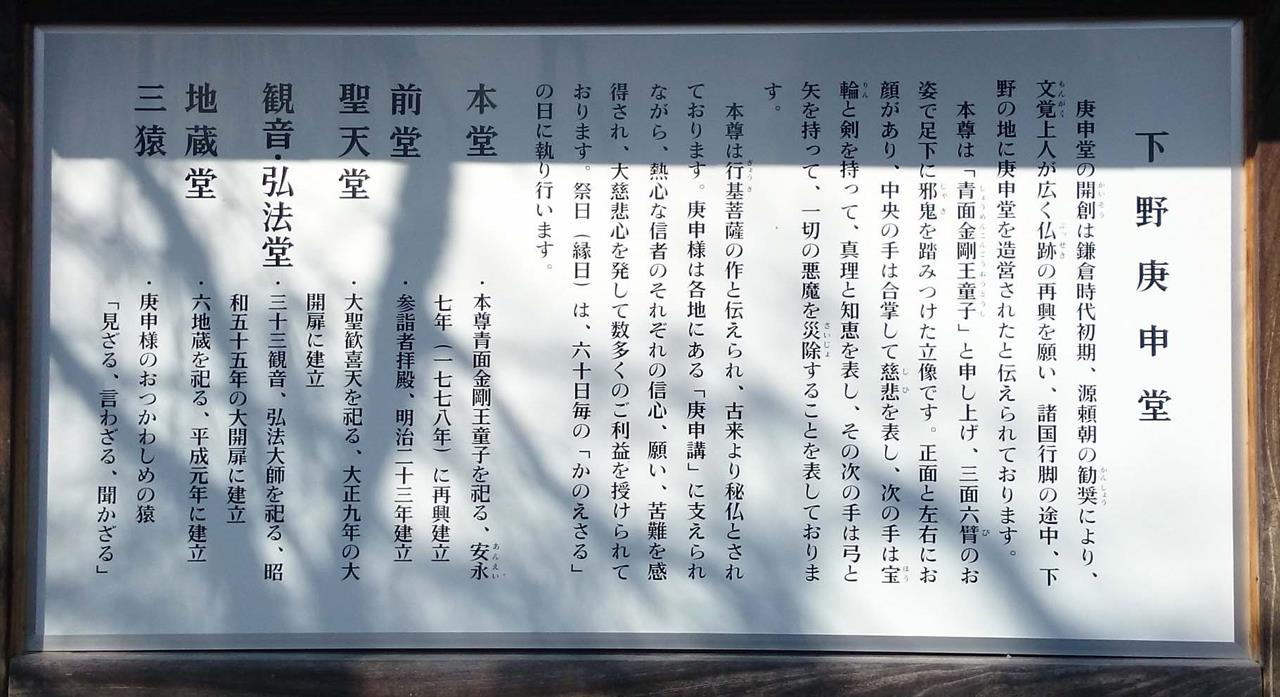 下野庚申堂
庚申堂の開創は鎌倉時代初期、源頼朝の勧奨により、
文覚上人が広く仏跡の再興を願い、諸国行脚の途中、下
野の地に庚申堂を造営されたと伝えられております。
本尊は「青面金剛王童子」と申し上げ、三面六臂のお
姿で足下に邪鬼を踏みつけた立像です。正面と左右にお
顔があり、中央の手は合掌して慈悲を表し、次の手は宝
輪と剣を持って、真理と知恵を表し、その次の手は弓と
矢を持って、一切の悪魔を災除することを表しておりま
す。
本尊は行基菩薩の作と伝えられ、古来より秘仏とされ
ております。庚申様は各地にある「庚申講」に支えられ
ながら、熱心な信者のそれぞれの信心、願い、苦難を感
得され、大慈悲心を発して数多くのご利益を授けられて
おります。祭日（縁日）は、六十日毎の「かのえさる」
の日に執り行います。
本堂　・本尊青面金剛王童子を祀る、安永
七年（一七七八年）に再興建立
前堂　・参詣者拝殿、明治二十三年建立
聖天堂　・大聖歓喜天を祀る、大正九年の大
開扉に建立
観音・弘法堂　・三十三観音、弘法大師を祀る、昭
和五十五年の大開扉に建立
地蔵堂　・六地蔵を祀る、平成元年に建立
三猿　・庚申様のおつかわしめの猿
「見ざる、言わざる、聞かざる」